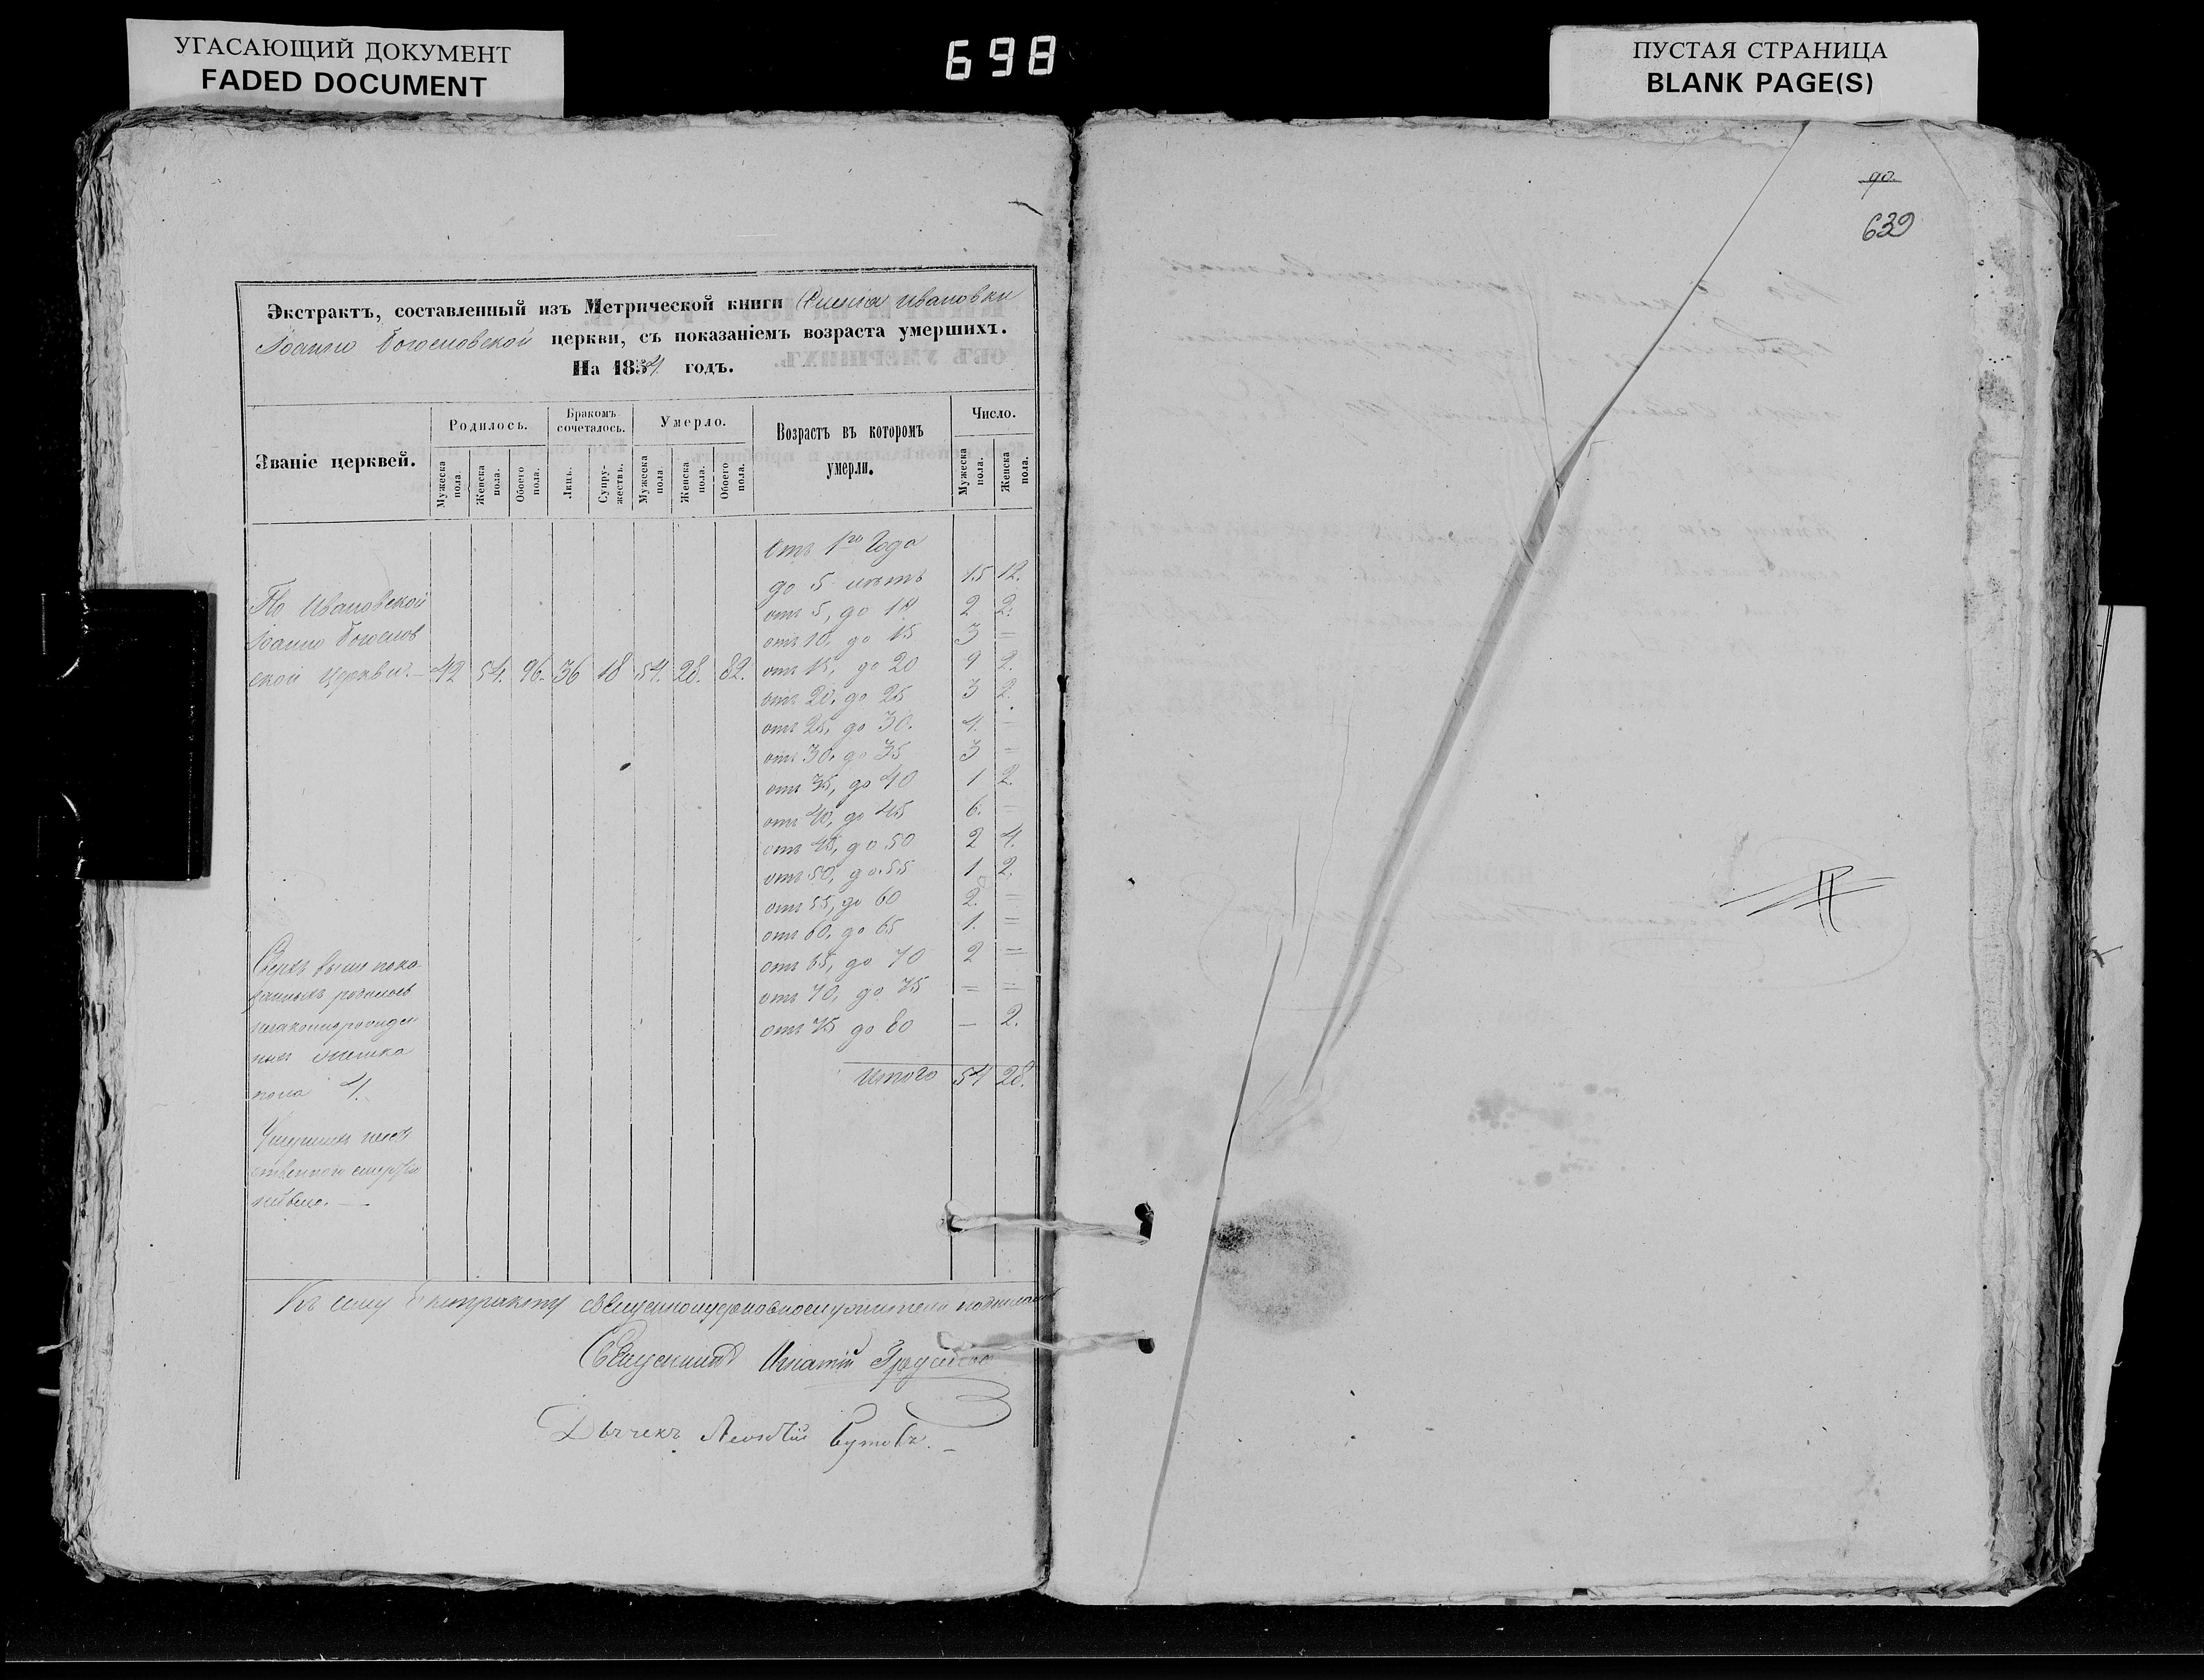 УГАСАЮЩИЙ ДОКУМЕНТ
FADED DOCUMENT
698
ПУСТАЯ СТРАНИЦА
BLANK PAGE(S)
Экстрактъ, составленный изъ Метрической книги Села Ивановки
Іоанно Богословской церкви, съ показаніемъ возраста умершихъ.
На 1854 годъ.
Званіе церквей.
Родилось.
Бракомъ сочеталось.
Умерло.
Возрастъ въ которомъ умерли.
Число.
Мужеска пола.
Женска пола.
Обоего пола.
Лицъ.
Супружествъ.
Мужеска пола.
Женска пола.
Обоего пола.
Мужеска пола.
Женска пола.
Отъ 1го Года
до 5 летъ 15 12.
По Ивановской
отъ 5, до 10 2 2.
Іоанно Богослов
отъ 10, до 15 3 =
ской Церкви. — 42 54. 96. 36 18 54. 28. 82. отъ 15, до 20 9 2.
отъ 20, до 25 3 2.
отъ 25, до 30. 4. =
отъ 30, до 35 3 =
отъ 35, до 40 1 2.
отъ 40, до 45 6. =
отъ 45, до 50 2 4.
отъ 50, до 55 1 2.
отъ 55, до 60 2. =
отъ 60, до 65 1. =
отъ 65, до 70 2 =
отъ 70, до 75 = =
отъ 75 до 80 — 2.
Итого 54 28.
Сверхъ выше пока
занныхъ родилось
незаконнорожден
ныхъ
пола 1.
Умершихъ
смертію
небыло. —
Къ сему Екстракту священноцерковнослужители подписались
Священникъ Игнатій
Дьячекъ Леонтій Бутовъ. —
90.
639